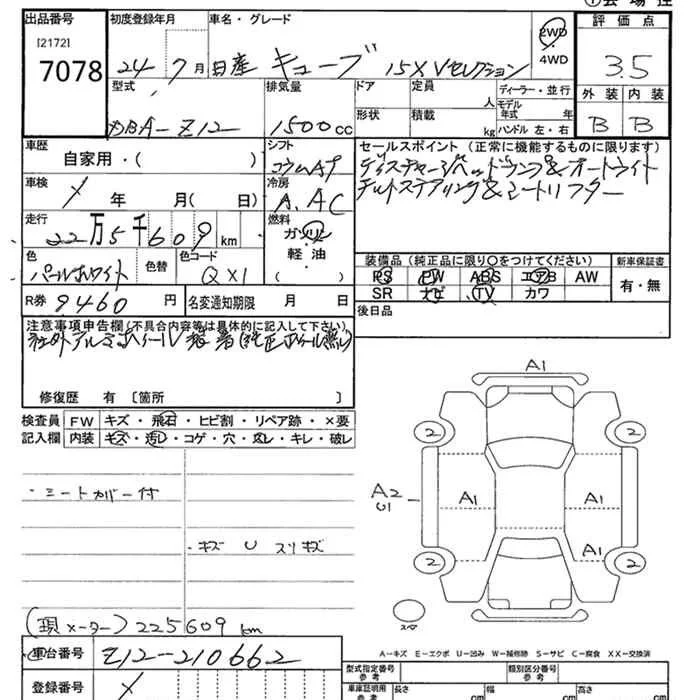 ①会場控
出品番号
[2172]
7078
初度登録年月
24年7月
車名・グレード
日産 キューブ 15X Vセレクション
2WD
4WD
評価点
3.5
外装 内装
B B
型式
DBA-Z12
排気量
1500cc
ドア
定員
人
形状
積載
kg
ディーラー・並行
モデル年式 年
ハンドル 左・右
車歴
自家用・( )
シフト
コラムAT
セールスポイント(正常に機能するものに限ります)
ディスチャージヘッドランプ&オートライト
チルトステアリング&シートリフター
車検
年 月( 日)
冷房
A.AC
走行
22万5千609km
燃料
ガソリン
軽油
( )
色
パールホワイト
色替
色コード
QX1
装備品(純正品に限り○をつけてください)
PS PW ABS エアB AW
SR ナビ TV カワ
新車保証書
有・無
R券
9460円
名変通知期限 月 日
後日品
注意事項申告欄(不具合内容等は具体的に記入して下さい)
社外アルミホイール装着(純正ホイール無し)
修復歴 有 〔箇所 〕
検査員記入欄
FW キズ・飛石・ヒビ割・リペア跡・×要
内装 キズ・汚レ・コゲ・穴・スレ・キレ・破レ
・シートカバー付
・キズ U スリキズ
A1
2
2
A2
U1
A1
A1
A1
2
2
スペ
(現メーター)225609km
車台番号
Z12-210662
登録番号
A-キズ E-エクボ U-凹み W-補修跡 S-サビ C-腐食 XX-交換済
型式指定番号
参考
類別区分番号
参考
車庫証明用
参考
長さ
cm
幅
cm
高さ
cm